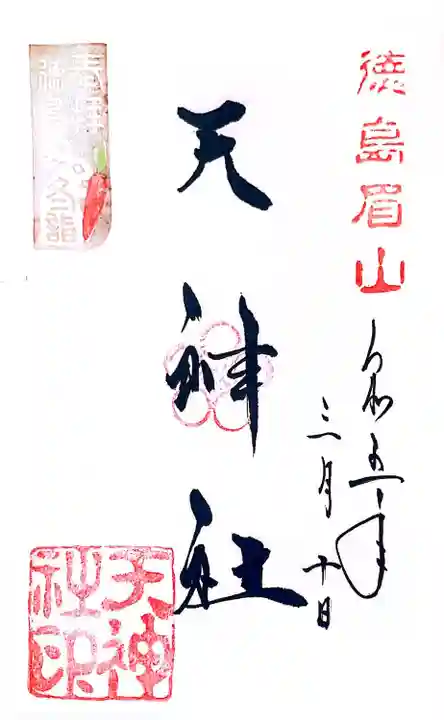 徳島眉山
令和五年
三月十日
天神社
天神
社印